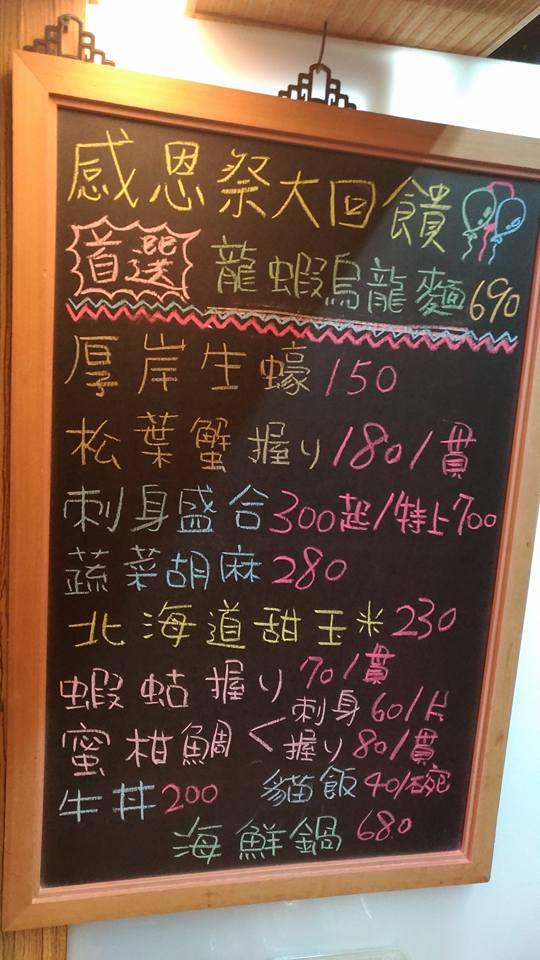 感恩祭大回饋
首選 龍蝦烏龍麵690
厚岸生蠔150
松葉蟹握り180/貫
刺身盛合300起/特上700
蔬菜胡麻280
北海道甜玉米230
蝦蛄握り70/貫
蜜柑鯛<刺身60/片
握り80/貫
牛丼200 貓飯40/碗
海鮮鍋680